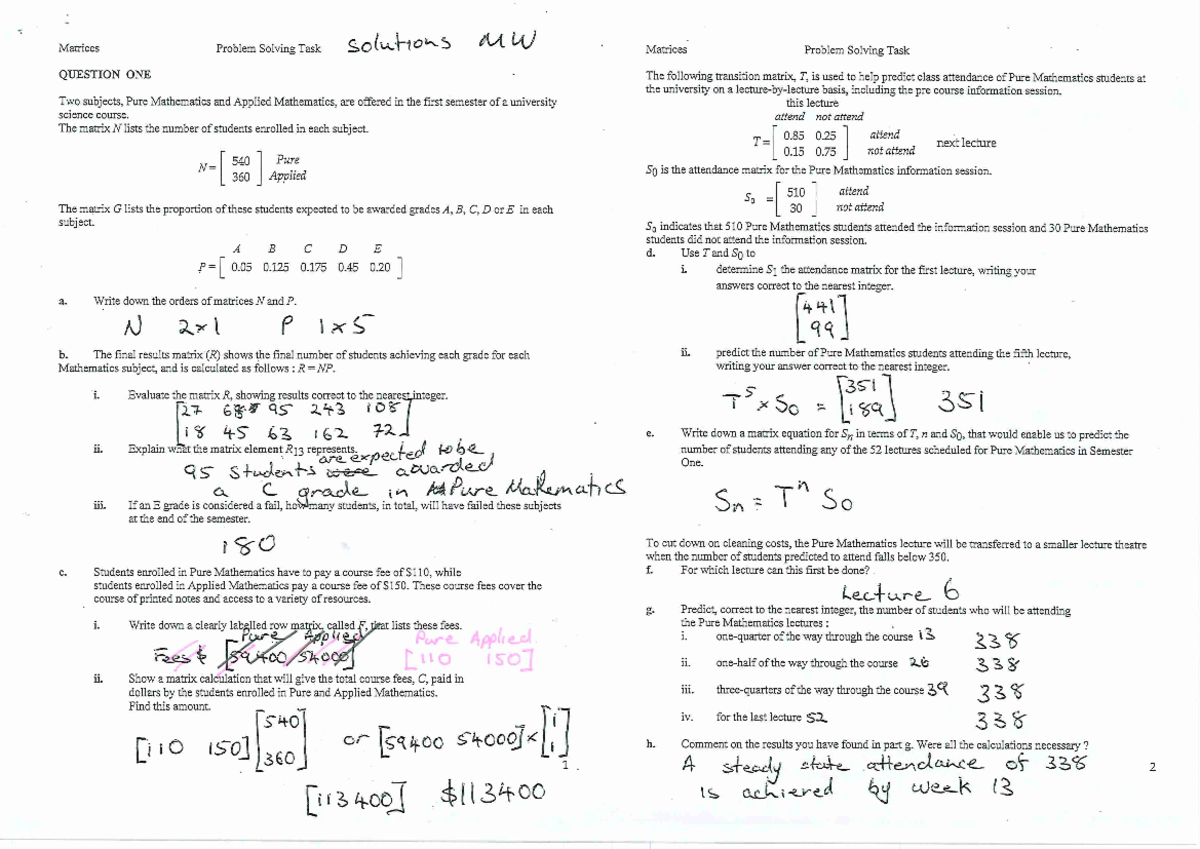 Matrices Problem Solving Task solutions MW
QUESTION ONE
Two subjects, Pure Mathematics and Applied Mathematics, are offered in the first semester of a university
science course.
The matrix N lists the number of students enrolled in each subject.
N = [ 540 ] Pure
[ 360 ] Applied
The matrix G lists the proportion of these students expected to be awarded grades A, B, C, D or E in each
subject.
A B C D E
P = [ 0.05 0.125 0.175 0.45 0.20 ]
a. Write down the orders of matrices N and P.
N 2×1 P 1×5
b. The final results matrix (R) shows the final number of students achieving each grade for each
Mathematics subject, and is calculated as follows : R = NP.
i. Evaluate the matrix R, showing results correct to the nearest integer.
[27 68 95 243 108
18 45 63 162 72]
ii. Explain what the matrix element R13 represents.
are expected to be
95 students were awarded
a C grade in Pure Mathematics
iii. If an E grade is considered a fail, how many students, in total, will have failed these subjects
at the end of the semester.
180
c. Students enrolled in Pure Mathematics have to pay a course fee of $110, while
students enrolled in Applied Mathematics pay a course fee of $150. These course fees cover the
course of printed notes and access to a variety of resources.
i. Write down a clearly labelled row matrix, called F, that lists these fees.
Pure Applied Pure Applied
Fees $ [59400 54000] [110 150]
ii. Show a matrix calculation that will give the total course fees, C, paid in
dollars by the students enrolled in Pure and Applied Mathematics.
Find this amount.
[110 150] [540 360] or [59400 54000] × [1 1]
1
[113400] $113400
Matrices Problem Solving Task
The following transition matrix, T, is used to help predict class attendance of Pure Mathematics students at
the university on a lecture-by-lecture basis, including the pre course information session.
this lecture
attend not attend
T = [ 0.85 0.25 ] attend
[ 0.15 0.75 ] not attend next lecture
S0 is the attendance matrix for the Pure Mathematics information session.
S0 = [ 510 ] attend
[ 30 ] not attend
S0 indicates that 510 Pure Mathematics students attended the information session and 30 Pure Mathematics
students did not attend the information session.
d. Use T and S0 to
i. determine S1 the attendance matrix for the first lecture, writing your
answers correct to the nearest integer.
[441
99]
ii. predict the number of Pure Mathematics students attending the fifth lecture,
writing your answer correct to the nearest integer.
T^5 × S0 = [351 189] 351
e. Write down a matrix equation for Sn in terms of T, n and S0, that would enable us to predict the
number of students attending any of the 52 lectures scheduled for Pure Mathematics in Semester
One.
Sn = T^n S0
To cut down on cleaning costs, the Pure Mathematics lecture will be transferred to a smaller lecture theatre
when the number of students predicted to attend falls below 350.
f. For which lecture can this first be done?
Lecture 6
g. Predict, correct to the nearest integer, the number of students who will be attending
the Pure Mathematics lectures :
i. one-quarter of the way through the course 13 338
ii. one-half of the way through the course 26 338
iii. three-quarters of the way through the course 39 338
iv. for the last lecture 52 338
h. Comment on the results you have found in part g. Were all the calculations necessary ?
A steady state attendance of 338
is achieved by week 13
2